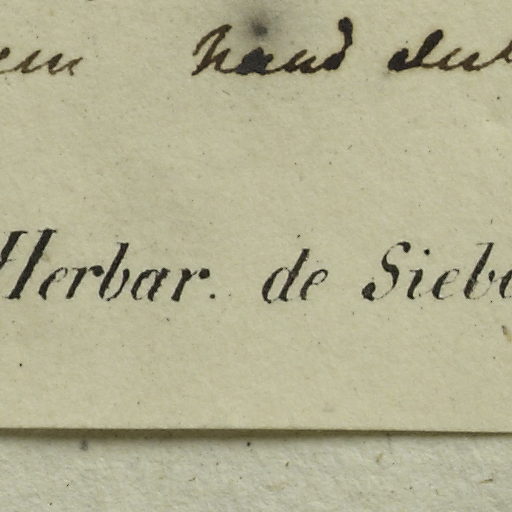 em haud dub
Herbar. de Siebo